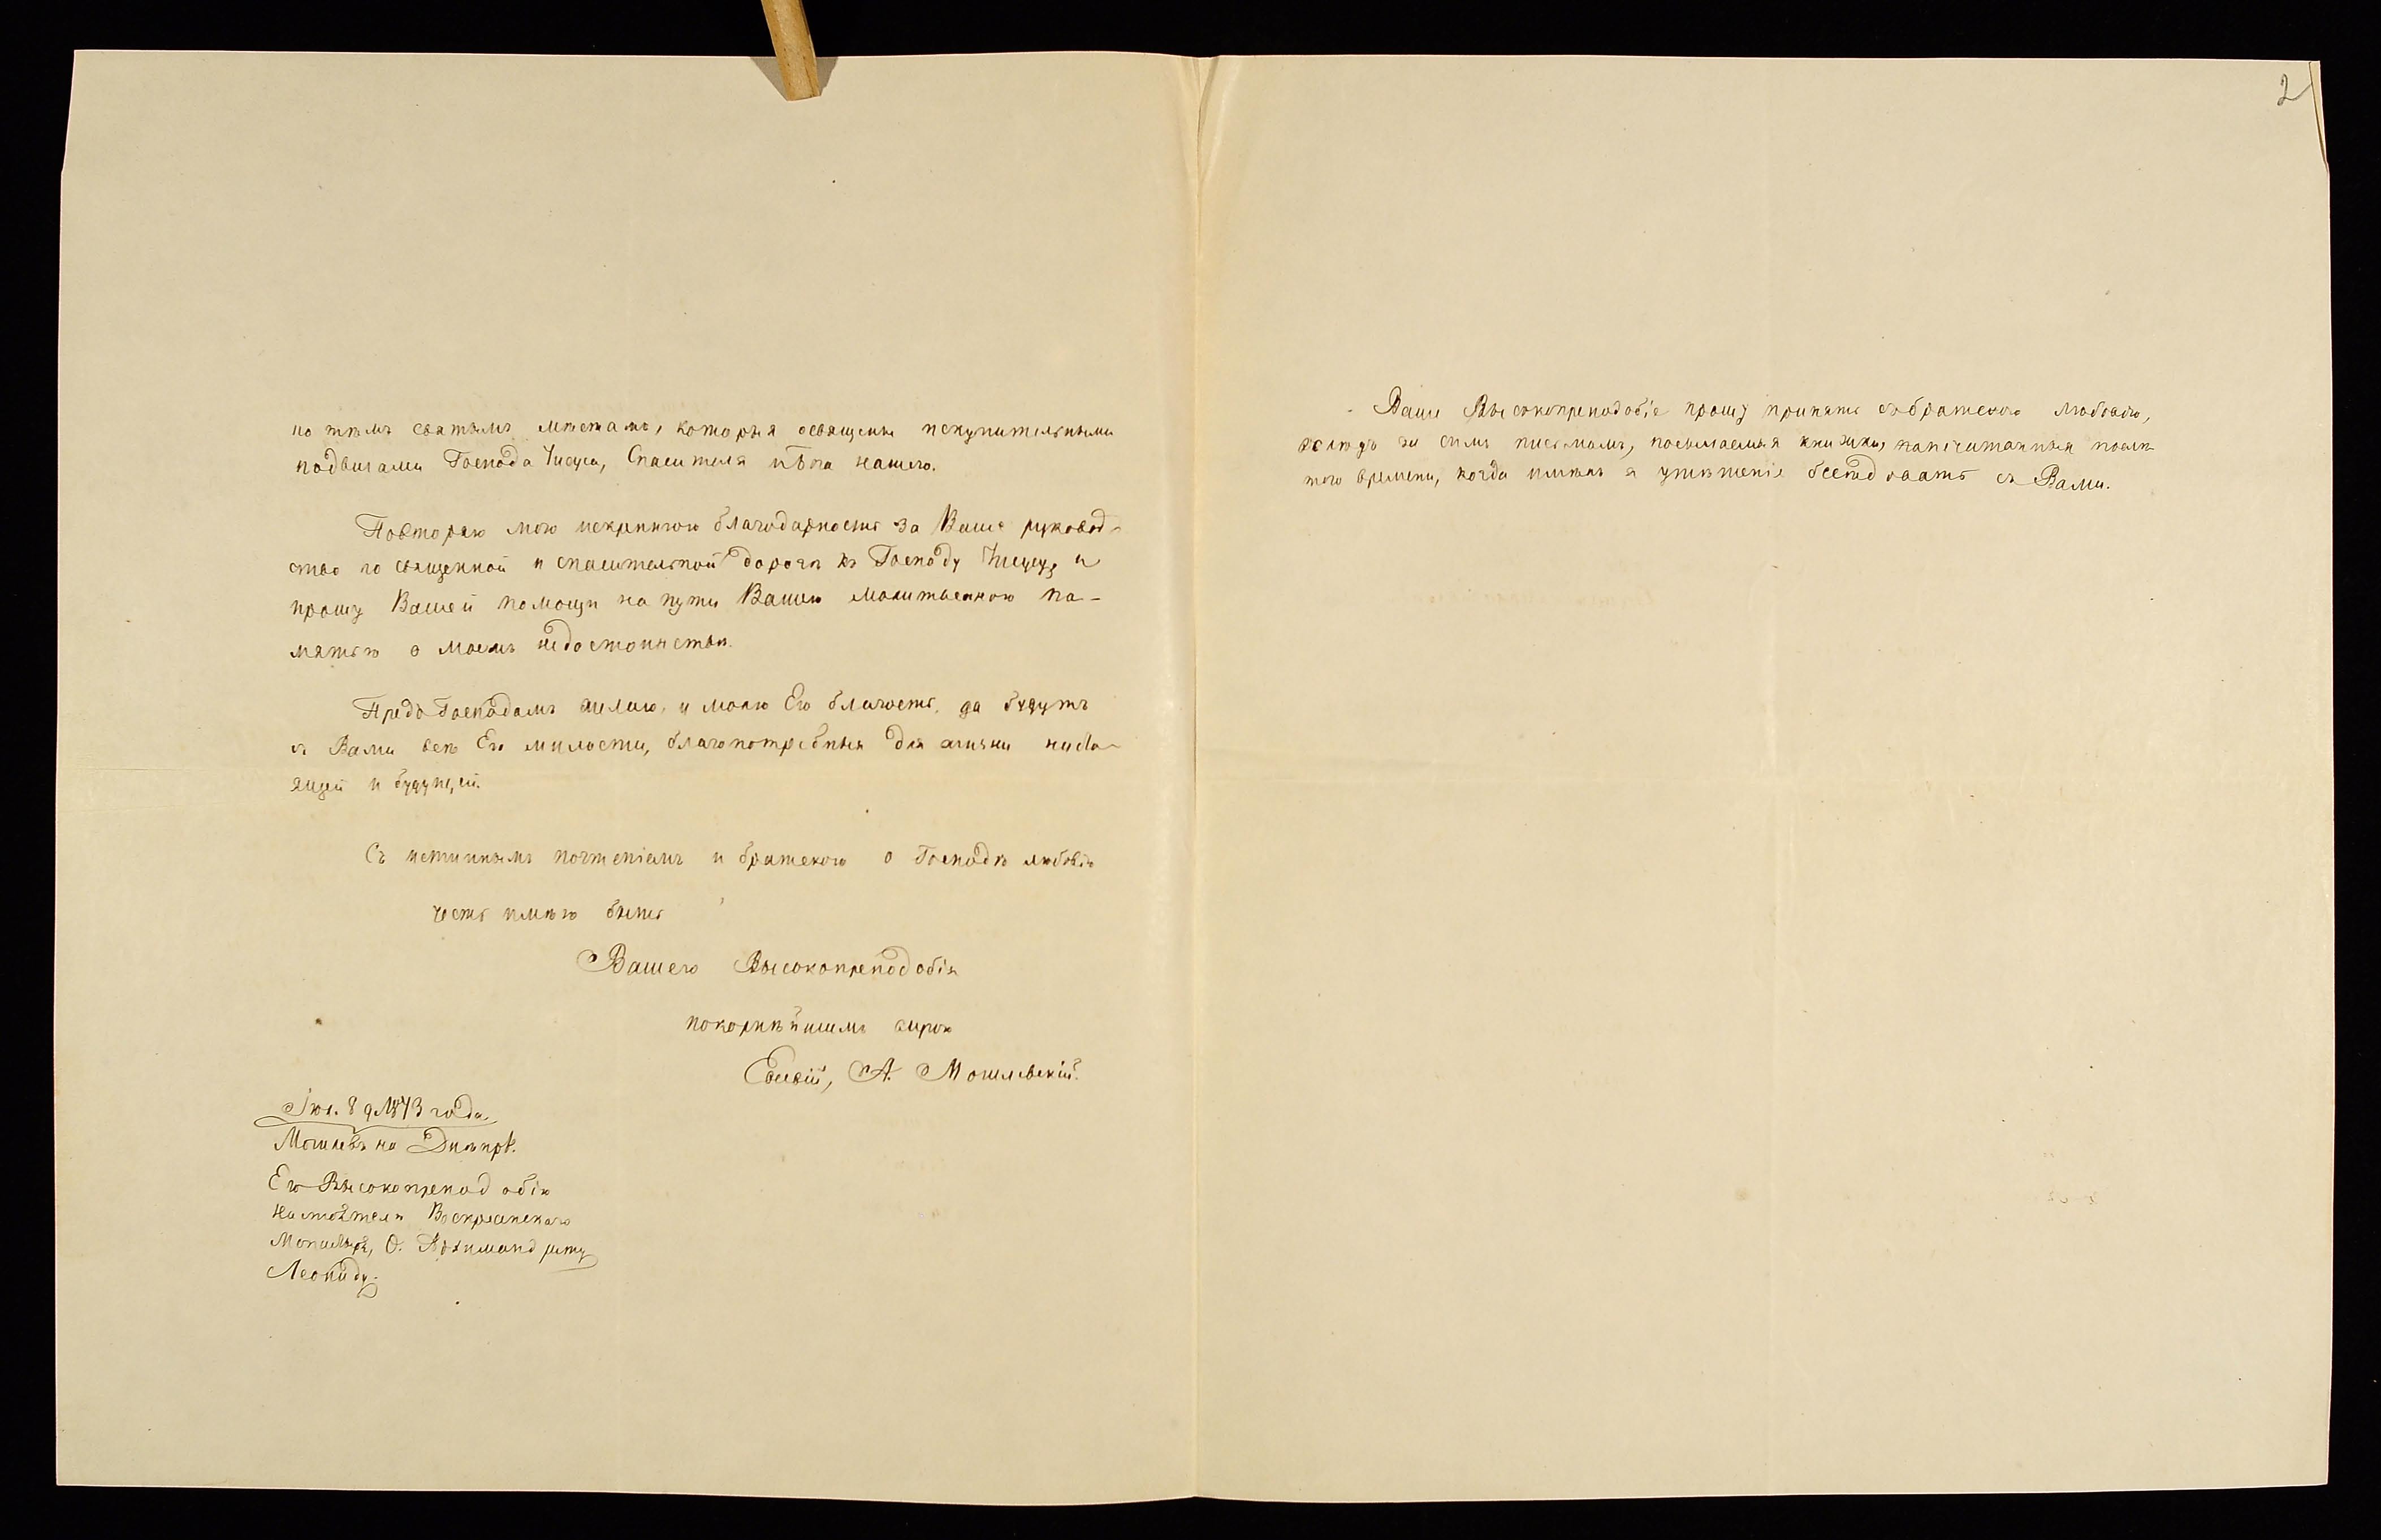 по тѣмъ святымъ мѣстамъ, которыя освящены искупительными
подвигами Господа Іисуса, Спасителя и Бога нашего.
Повторяю мою искреннюю благодарность за Ваше руковод-
ство по священной и спасительной дорогѣ къ Господу Іисусу, и
прошу Вашей помощи на пути Вашею молитвенною па-
мятью о моемъ недостоинствѣ.
Предъ Господомъ желаю, и молю Его благость, да будутъ
съ Вами всѣ Его милости, благопотребныя для жизни насто-
ящей и будущей.
Съ истиннымъ почтеніемъ и братскою о Господѣ любовію
честь имѣю быть
Вашего Высокопреподобія
покорнѣйшимъ слугою
Евсевій, А. Могилевскій.
Іюл. 8 д. 1873 года.
Могилевъ на Днѣпрѣ.
Его Высокопреподобію
Настоятелю Воскресенскаго
Монастыря, О. Архимандриту
Леониду.
2
Ваше Высокопреподобіе прошу принять съ братскою любовію,
вслѣдъ за симъ письмомъ, посылаемыя книжки, напечатанныя послѣ
того времени, когда имѣлъ я утѣшеніе бесѣдовать съ Вами.